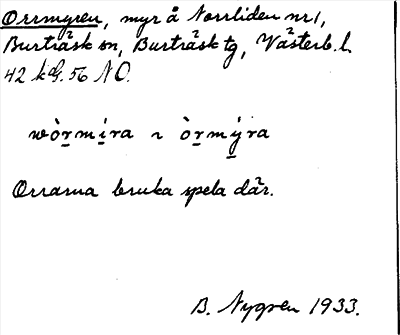 Orrmyren, myr å Norrliden nr 1,
Burträsk sn, Burträsk tg, Västerb. l.
42 kg. 56 NO.
wòr̲mi̲ra ı òr̲mý̲ra
Orrarna bruka spela där.
B. Nygren 1933.